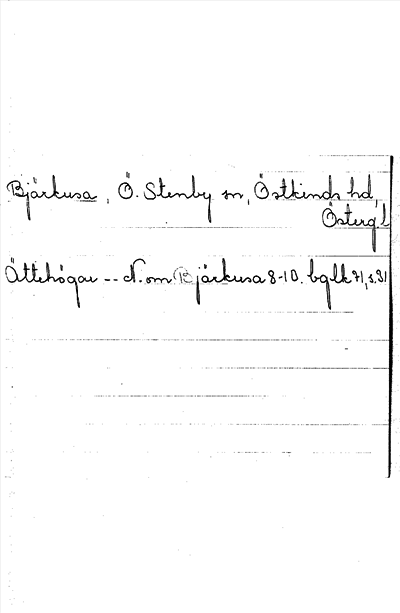 Bjärkusa, Ö. Stenby sn, Östkinds hd,
Östergl
Ättehögar -- N. om Bjärkusa 8-10. bglk 71, s. 31